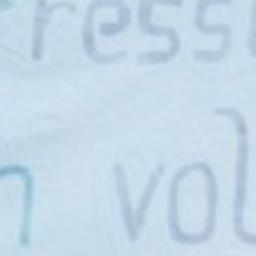 ress
n vol